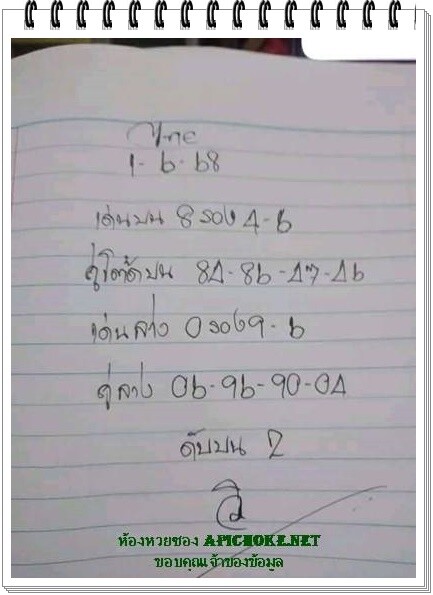 ไทย
1-6-68
เด่นบน 8 รอง 4-6
คู่โต๊ดบน 84-86-47-46
เด่นล่าง 0 รอง 9-6
คู่ล่าง 06-96-90-04
ดับบน 2
วิ
ห้องหวยซอง APICHOKE.NET
ขอบคุณเจ้าของข้อมูล